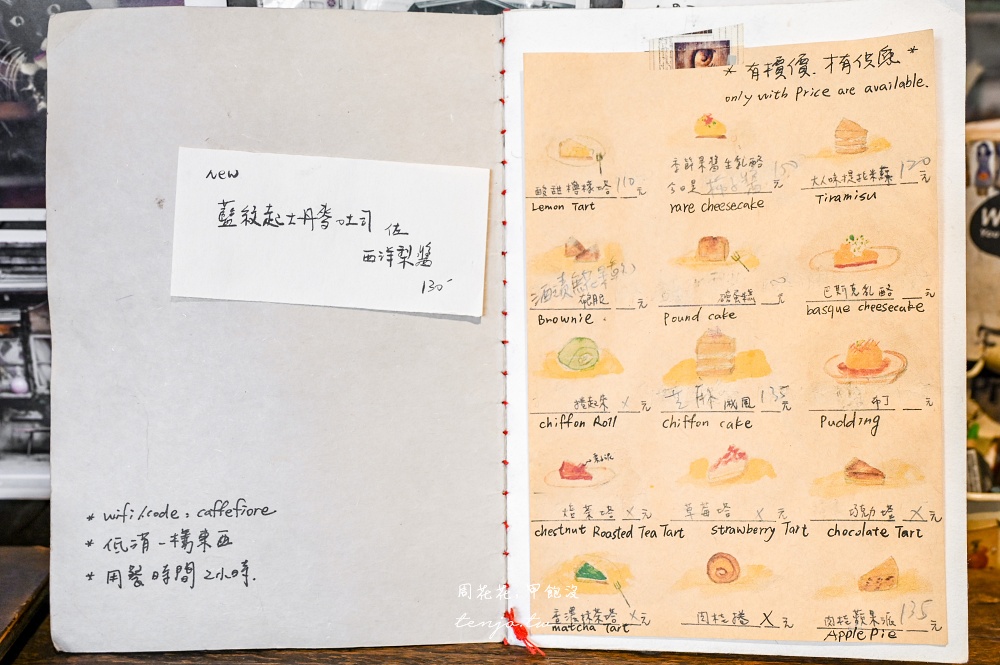 New
藍紋起士丹麥吐司 佐
西洋梨醬
130
* wifi/code: caffefiore
* 低消一樣東西
* 用餐時間 2小時.
* 有標價.才有供應 *
only with Price are available.
酸甜檸檬塔 110 元
Lemon Tart
季節果醬生乳酪
今日是 元
rare cheesecake
大人味提拉米蘇 元
Tiramisu
元
Brownie
磅蛋糕 元
Pound cake
巴斯克乳酪 元
basque cheesecake
捲起來 X 元
chiffon Roll
戚風 135 元
chiffon cake
布丁 元
Pudding
X 元
chestnut Roasted Tea Tart
草莓塔 X 元
strawberry Tart
巧克力塔 X 元
chocolate Tart
香濃抹茶塔 X 元
matcha Tart
肉桂捲 X 元
肉桂蘋果派 135 元
Apple Pie
周花花, 甲飽沒